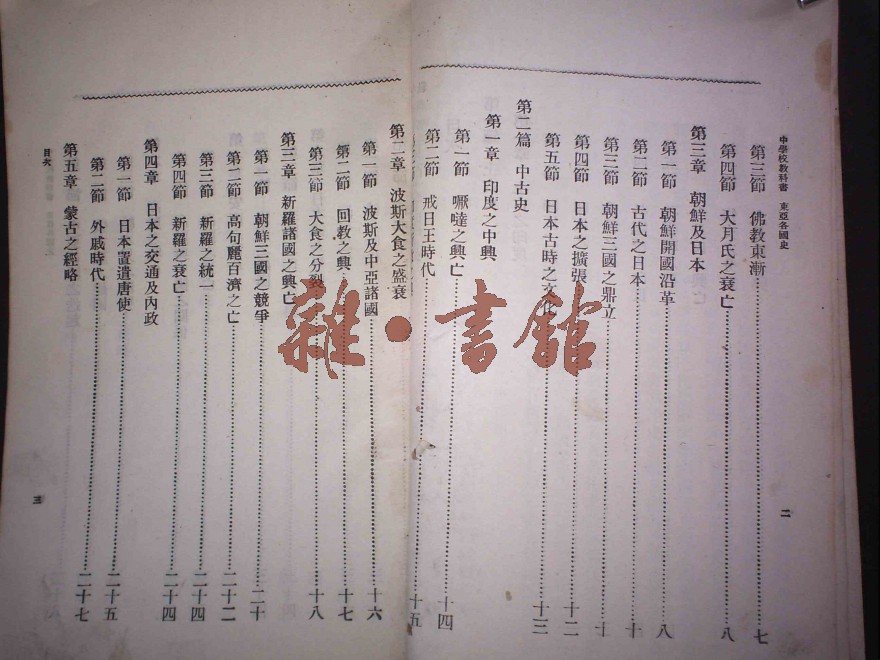 中學校教科書 東亞各國史
二
第三節 佛教東漸 七
第四節 大月氏之衰亡 八
第三章 朝鮮及日本
第一節 朝鮮開國沿革 八
第二節 古代之日本 十
第三節 朝鮮三國之鼎立 十
第四節 日本之擴張 十二
第五節 日本古時之文化 十三
第二篇 中古史
第一章 印度之中興
第一節 嚈噠之興亡 十四
第二節 戒日王時代 十五
第二章 波斯大食之盛衰
第一節 波斯及中亞諸國 十六
第二節 回教之興 十七
第三節 大食之分裂 十八
第三章 新羅諸國之興亡
第一節 朝鮮三國之競爭 二十
第二節 高句麗百濟之亡 二十二
第三節 新羅之統一 二十四
第四節 新羅之衰亡 二十四
第四章 日本之交通及內政
第一節 日本置遣唐使 二十五
第二節 外戚時代 二十七
第五章 蒙古之經略
目次
三
雜·書館